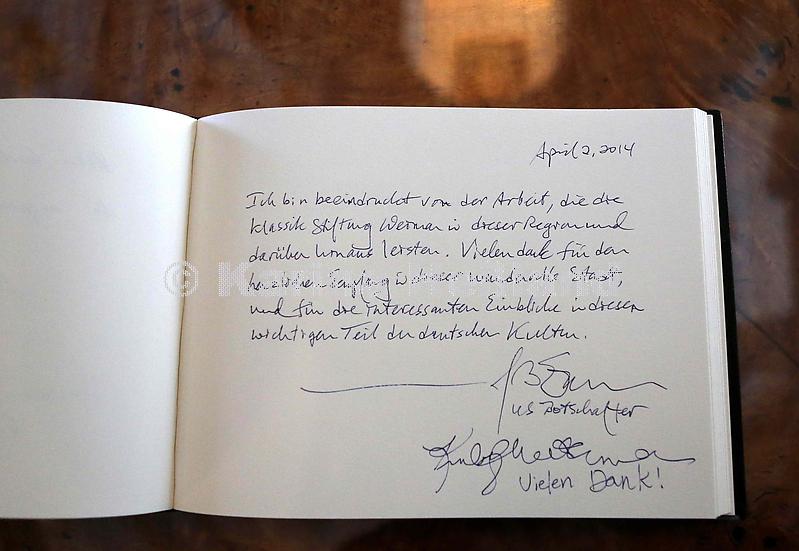 April 2, 2014
Ich bin beeindruckt von der Arbeit, die die
Klassik Stiftung Weimar in dieser Region und
darüber hinaus leisten. Vielen dank für den
herzlichen Empfang in dieser wundervolle Stadt,
und für die interessanten Einblicke in diesen
wichtigen Teil der deutschen Kultur.
US Botschafter
Vielen Dank!